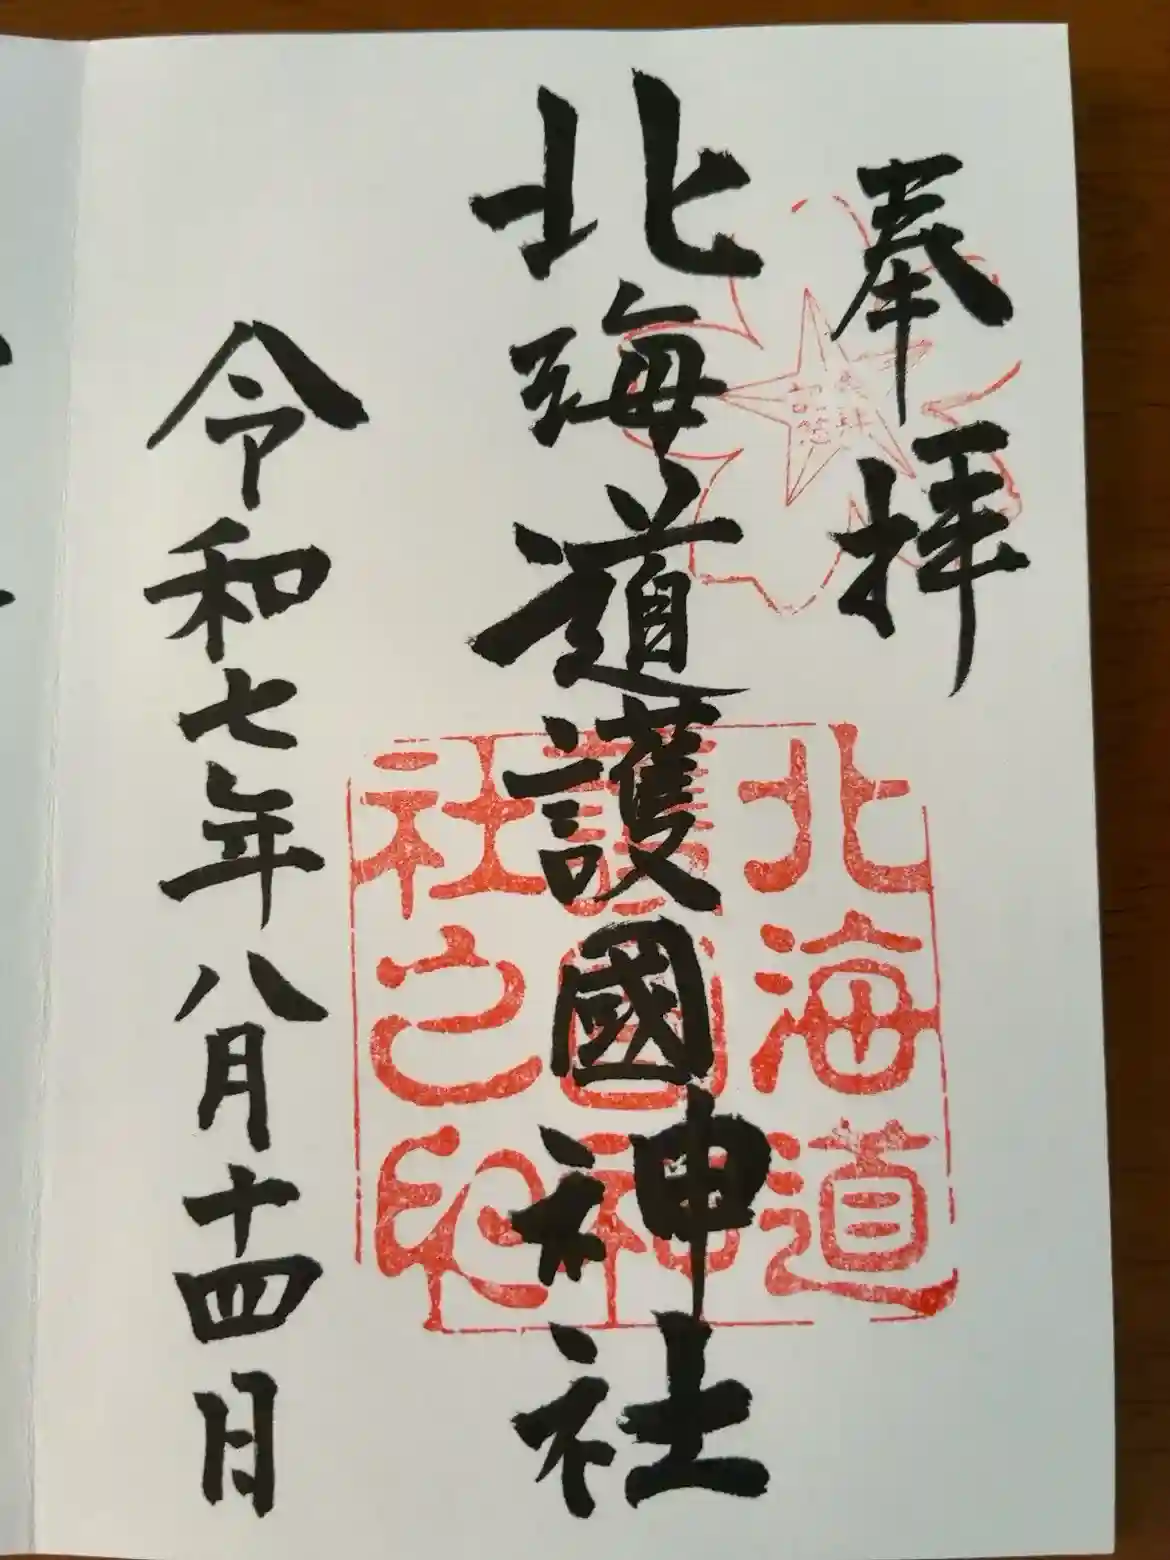 奉拝
参拝
記念
北海道護國神社
北海道
護國神
社之印
令和七年八月十四日